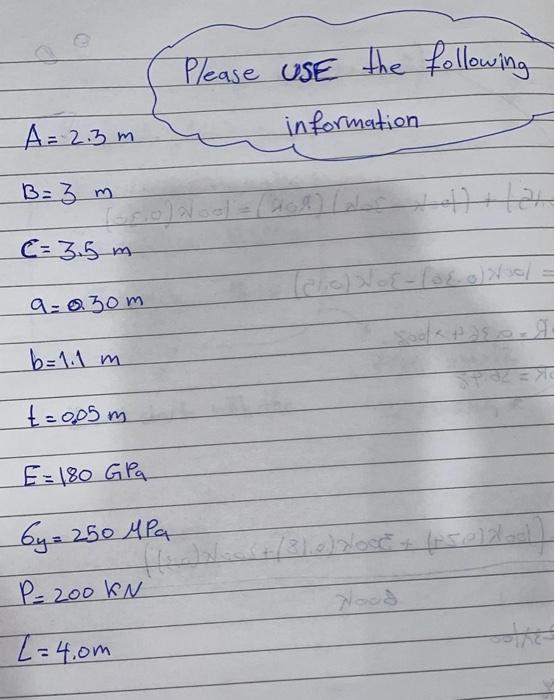 Please USE the following
information
A = 2.3 m
B = 3 m
C = 3.5 m
a = 0.30 m
b = 1.1 m
t = 0.05 m
E = 180 GPa
σy = 250 MPa
P = 200 KN
L = 4.0m